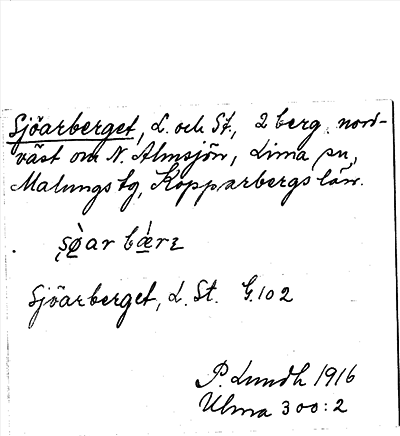 Sjöarberget, L. och St., 2 berg nord-
väst om N. Almsjön, Lima sn,
Malungs tg, Kopparbergs län.
Sjöarberget, L. St. G.102
P. Lundh 1916
Ulma 300:2